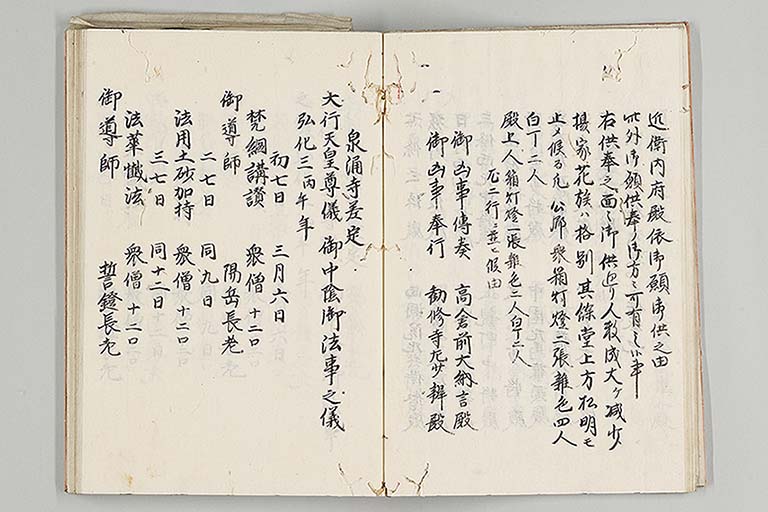 近衛内府殿依御願御供之由
此外御願供奉ノ御方ニ可有之候事
右供奉之面々御供廻り人数成大ケ減少
揚家花族ハ格別其餘堂上方松明モ
止メ候而凡公卿衆箱灯燈二張雑色四人
白丁二人
殿上人箱灯燈一張雑色二人白丁二人
尤二行ニ並ヒ候由
御凶事傳奏 高倉前大納言殿
御凶事奉行 勧修寺左少辨殿
泉涌寺差定
大行天皇尊儀御中陰御法事之儀
弘化三丙午年
初七日 三月六日
梵網講讃 衆僧十二口
御導師 陽岳長老
二七日 同九日
法用土砂加持 衆僧十二口
三七日 同十二日
法華懺法 衆僧十二口
御導師 誓鐙長老